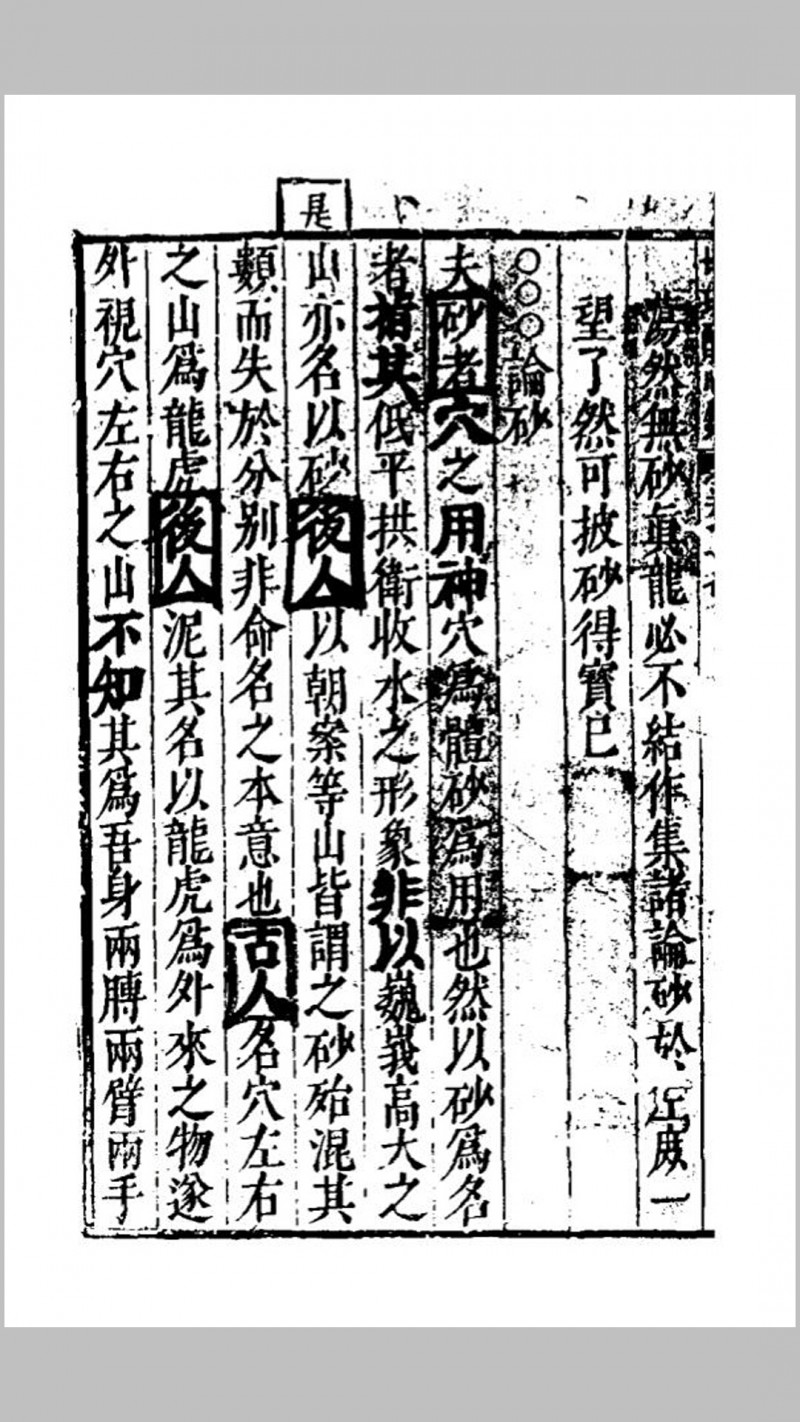 蕩然無砂真龍必不結作集諸論砂於庶一
望了然可披砂得寶已
○○○論砂
夫砂者穴之用神穴為體砂為用也然以砂為名
者指其低平拱衛收水之形象非以巍峩高大之
山亦名以砂後人以朝案等山皆謂之砂殆混其
類而失於分別非命名之本意也古人名穴左右
之山為龍虎後人泥其名以龍虎為外來之物遂
外視穴左右之山不知其為吾身兩膊兩臂兩手
是